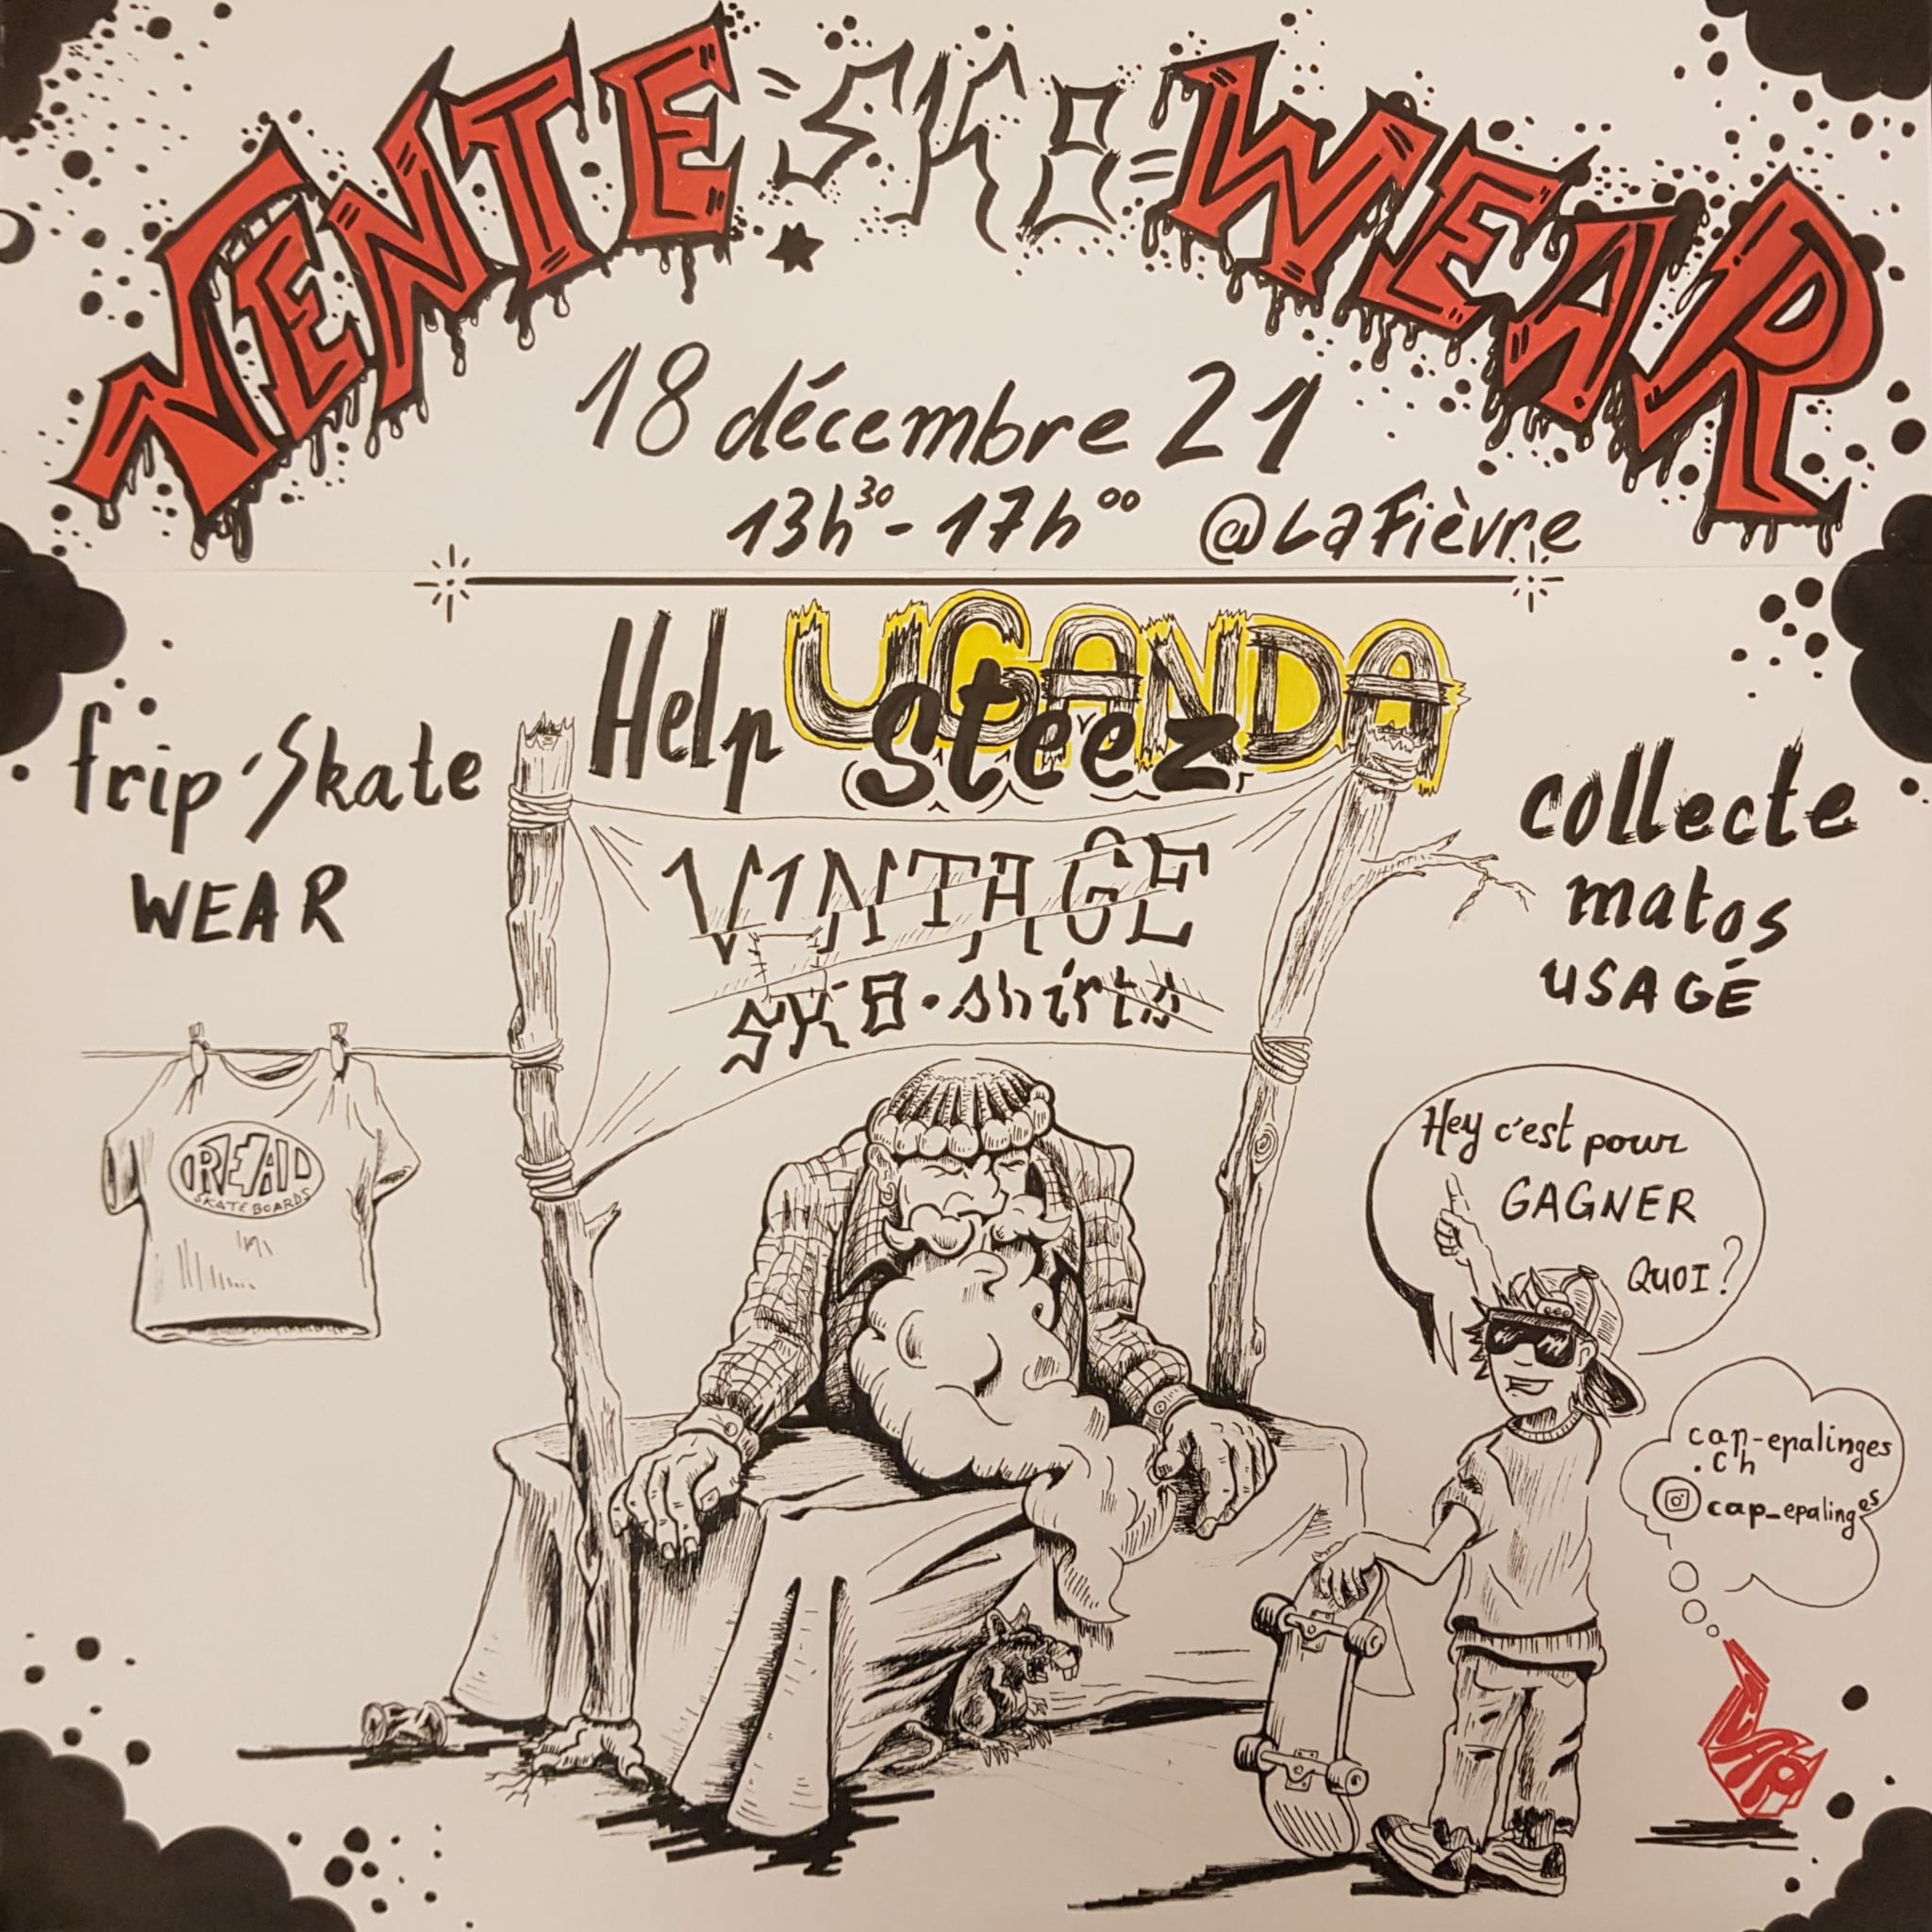 VENTE SK8 WEAR
18 décembre 21
13h30 - 17h00 @LaFièvre
Help UGANDA
Steez
frip'Skate
WEAR
VINTAGE
SK8•shirts
collecte
matos
USAGÉ
REAL
SKATEBOARDS
Hey c'est pour
GAGNER
QUOI?
cap-epalinges
.ch
cap_epalinges
CAP